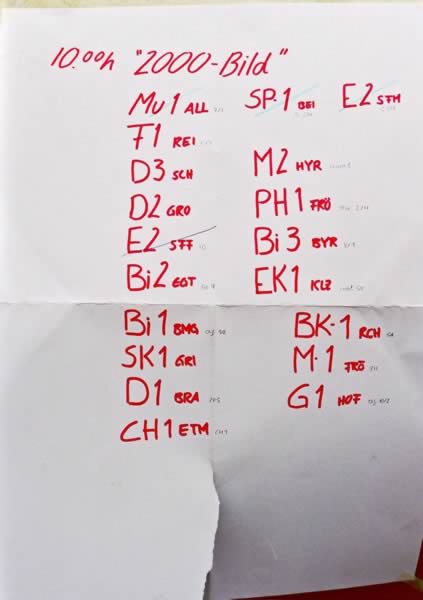 10.00h "2000-Bild"
Mu1 ALL SP.1 BEI E2 STM
F1 REI
D3 SCH M2 HYR
D2 GRO PH1 FRÖ
E2 STF Bi3 BYR
Bi2 EGT EK1 KLZ
Bi1 BMG BK-1 RCH
SK1 GRI M.1 FRÖ
D1 BRA G1 HOF
CH1 ETM